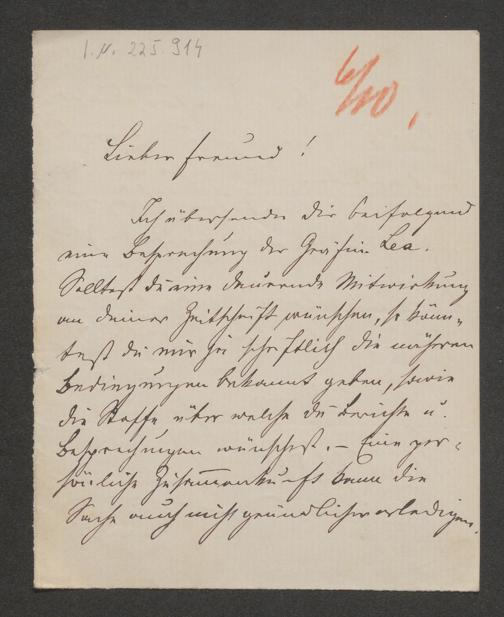 I. N. 225.914
6/10.
Lieber Freund!
Ich übersende Dir beifolgend
eine Besprechung der Gräfin Lea.
Solltest du eine dauernde Mitwirkung
an deiner Zeitschrift wünschen, so könn-
test du mir ja schriftlich die näheren
Bedingungen bekannt geben, sowie
die Stoffe über welche du Berichte u.
Besprechungen wünschest. – Eine per-
sönliche Zusammenkunft kann die
Sache auch nicht gründlicher erledigen.